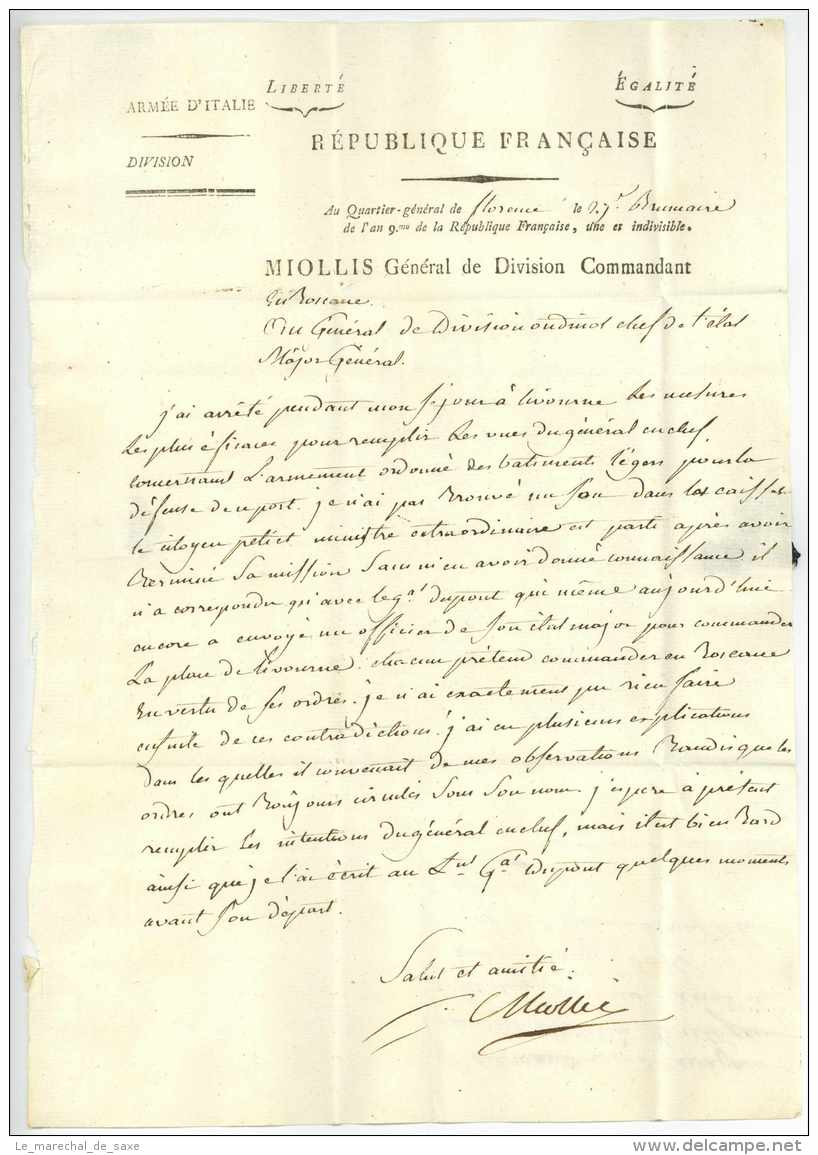 LIBERTÉ ÉGALITÉ
ARMÉE D'ITALIE
RÉPUBLIQUE FRANÇAISE
DIVISION
Au Quartier-général de florence le 27 Brumaire
de l'an 9.me de la République Française, une et indivisible.
MIOLLIS Général de Division Commandant
En Toscane.
Au Général de Division oudinot chef de l'état
Major Général.
j'ai arrêté pendant mon séjour à livourne les mesures
les plus éficaces pour remplir les vues du général en chef
concernant l'armement ordonné des batiments légers pour la
défense de ce port. je n'ai pas trouvé un sou dans les caisses
le citoyen petiet ministre extraordinaire est parti après avoir
terminé sa mission sans m'en avoir donné connaissance il
n'a correspondu qu'avec le gal dupont qui même aujourd'hui
encore a envoyé un officier de son état major pour commander
la place de livourne. chacun prétend commander en Toscane
en vertu de ses ordres. je n'ai exactement pu rien faire
ensuite de ces contradictions. j'ai eu plusieurs explications
dans les quelles il convenait de mes observations tandis que les
ordres ont toujours circulés sous son nom. j'espere à présent
remplir les intentions du général en chef, mais il est bien tard
ainsi que je l'ai écrit au Lnt Gal Dupont quelques moments
avant son départ.
Salut et amitié.
Miollis
Le_marechal_de_saxe
delcampe.net